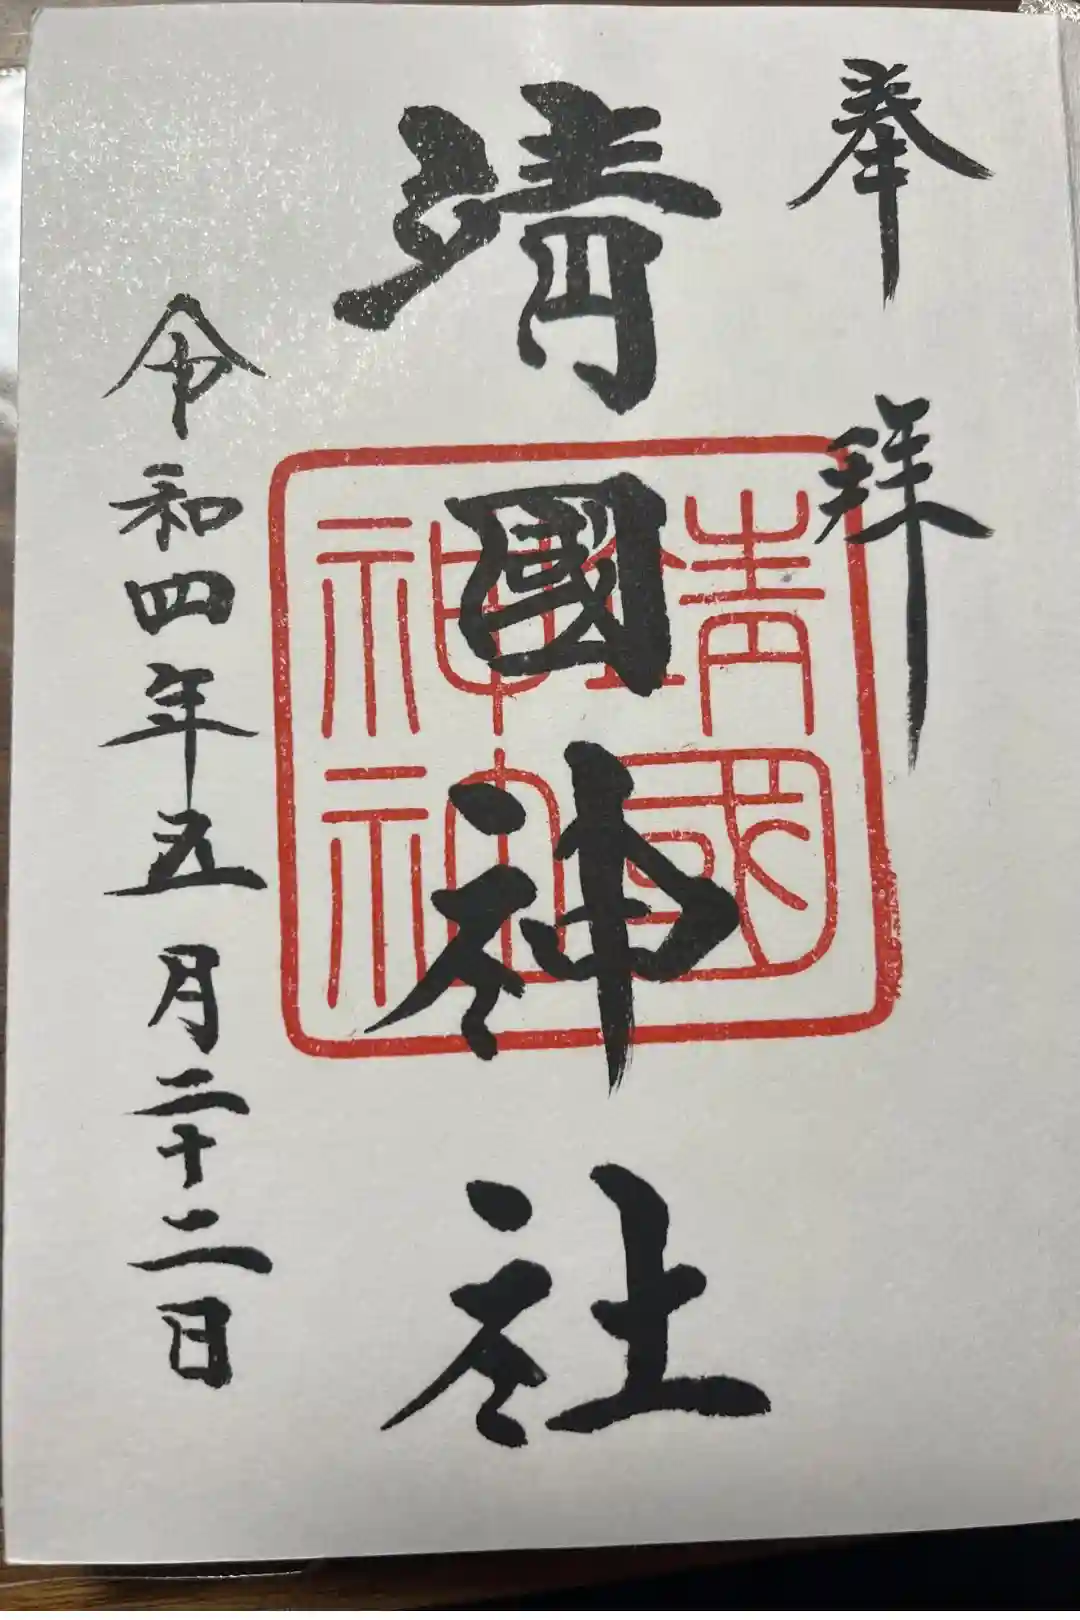 奉拜
靖國神社
靖國
神社
令和四年五月二十二日